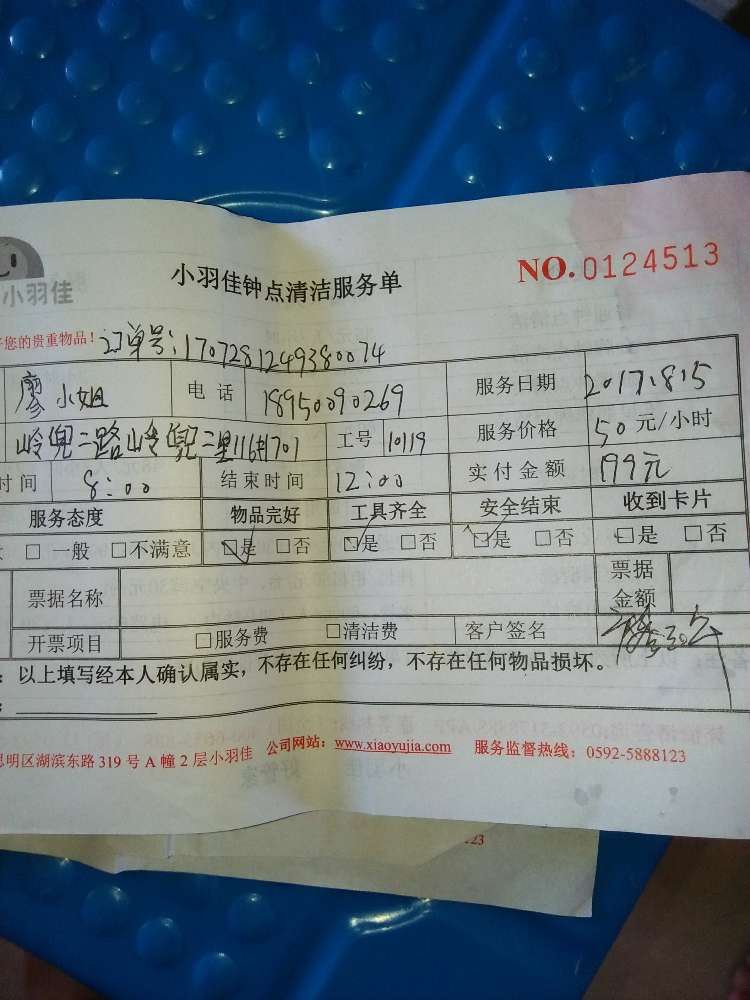 小羽佳
小羽佳钟点清洁服务单
NO.0124513
您的贵重物品！订单号:170728124938​0074
廖小姐 电话 18950090269 服务日期 2017.8.15
岭兜二路岭兜二里116 701 工号 10119 服务价格 50元/小时
时间 8:00 结束时间 12:00 实付金额 199元
服务态度 物品完好 工具齐全 安全结束 收到卡片
□一般 □不满意 □是 □否 □是 □否 □是 □否 □是 □否
票据名称 票据金额
开票项目 □服务费 □清洁费 客户签名
：以上填写经本人确认属实，不存在任何纠纷，不存在任何物品损坏。
思明区湖滨东路319号A幢2层小羽佳 公司网站：www.xiaoyujia.com 服务监督热线：0592-5888123
123